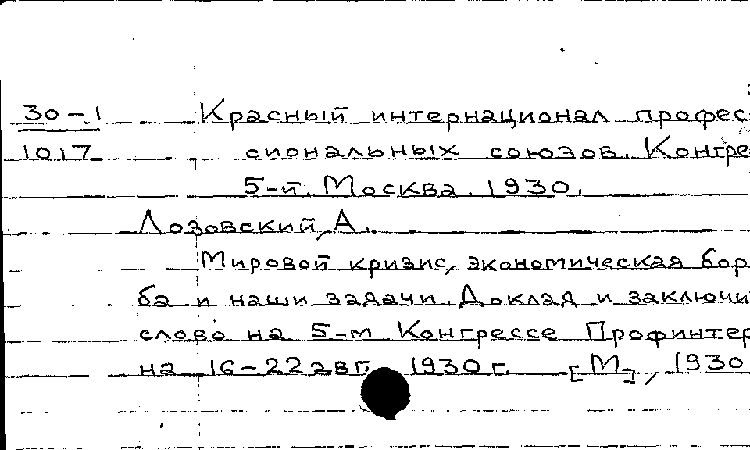 30-1 Красный интернационал профес
1017 сиональных союзов. Конгре
5-й. Москва. 1930.
Лозовский, А.
Мировой кризис, экономическая бор
ба и наши задачи. Доклад и заключи
слово на 5-м Конгрессе Профинтер
на 16-22 авг. 1930 г. [М.], 1930